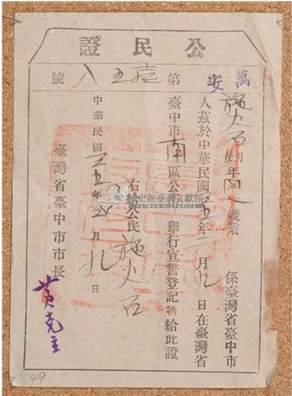 公民證
萬安 第壹五八號
施火石 年 歲業 係臺灣省臺中市
人茲於中華民國 五年二月九日在臺灣省
臺中市南區公所舉行宣誓登記特給此證
右給公民 施火石
中華民國 五年 月九日
臺灣省臺中市市長 黃克立
國史館臺灣文獻館
49